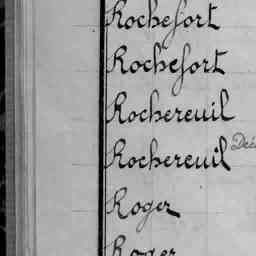 Rochefort
Rochefort
Rochereuil
Rochereuil
Roger
Roger